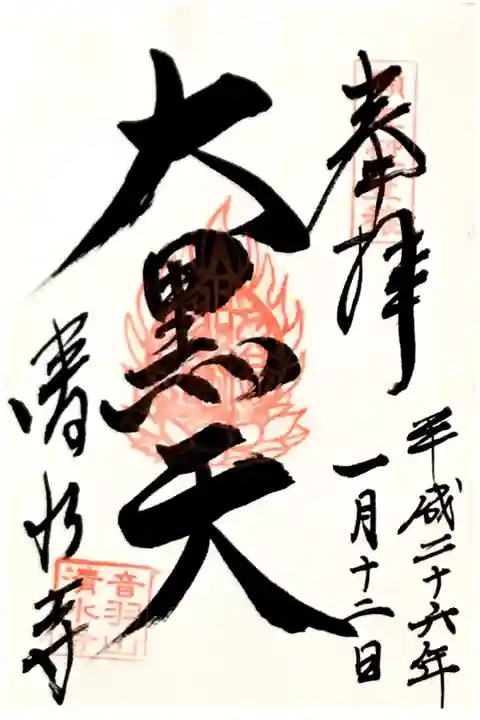 奉拝
平成二十六年
一月十二日
大黒天
清水寺
音羽山
清水寺